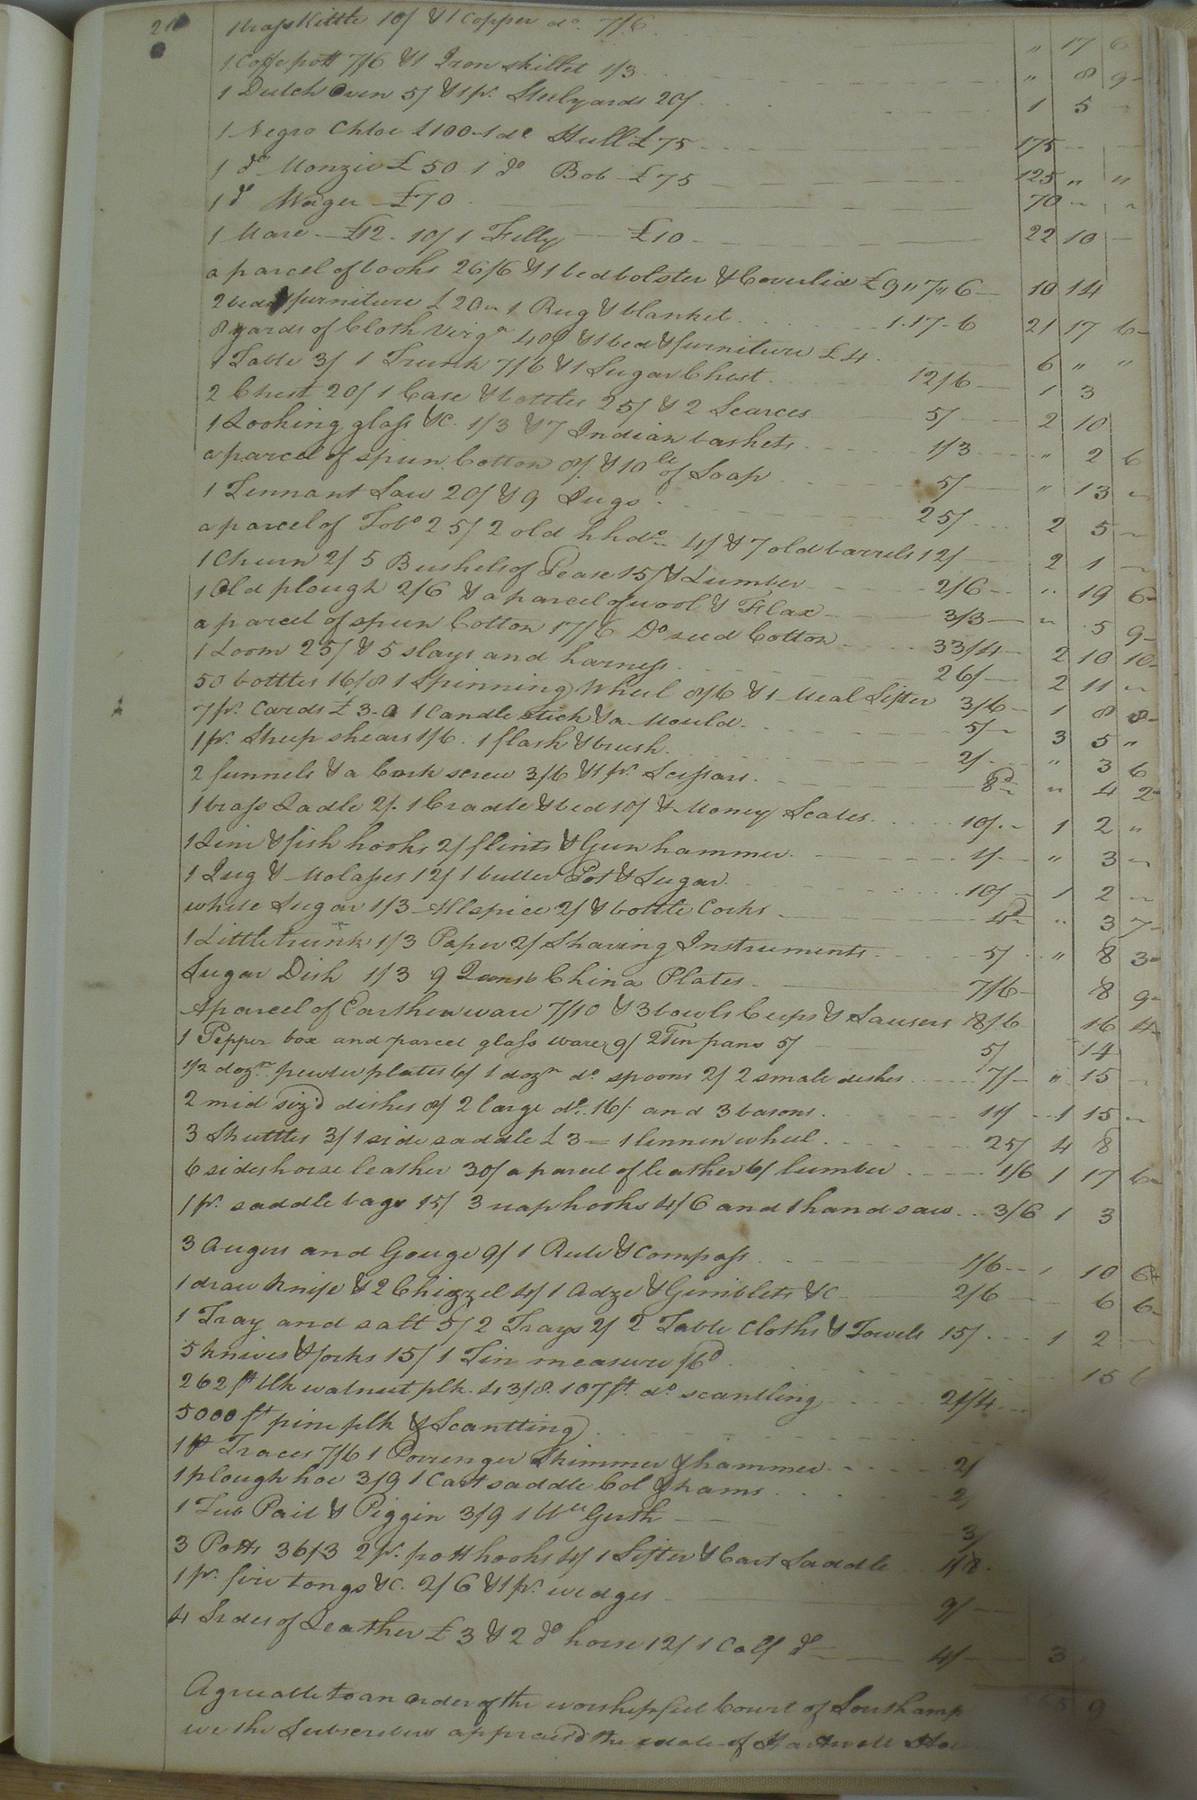 1 brass Kittle 10/ & 1 Copper do. 7/6 " 17 6
1 Coffe pott 7/6 & 1 Iron skillet 1/3 " 8 9
1 Dutch Oven 5/ & 1 pr. Steelyards 20/ 1 5
1 Negro Chloe £100 - 1 do Hull £75 175
1 do Monzie £50 1 do Bob - £75 125 " "
1 do Wager - £70 70
1 Mare - £12 - 10/ 1 Filly - £10 22 10
a parcel of books 26/6 & 1 bed bolster & Coverlid £9 " 7 " 6 10 14
2 beds furniture £20 - 1 Rug & blanket 1.17.6 21 17 6
8 yards of Cloth Virga 40/ & 1 bed & furniture £4 6 " "
1 Table 3/ 1 Trunk 7/6 & 1 Sugar Chest 12/6 1 3
2 Chest 20/ 1 Case & bottles 25/ & 2 Searces 5/ 2 10
1 Looking glass &c. 1/3 & 7 Indian baskets 1/3 " 2 6
a parcel of spun Cotton 8/ & 10 lb of Soap 5/ " 13
1 Tennant Saw 20/ & 9 Jugs 25/ 2 5
a parcel of Tobo 25/ 2 old hhds 4/ & 7 old barrels 12/ 2 1
1 Churn 2/ 5 Bushels of Pease 15/ & Lumber 2/6 " 19 6
1 Old plough 2/6 & a parcel of wool & Flax 3/3 " 5 9
a parcel of spun Cotton 17/6 Do seed Cotton 33/4 2 10 10
1 Loom 25/ & 5 slays and harness 26/ 2 11
50 bottles 16/8 1 Spinning Wheel 8/6 & 1 Meal Sifter 3/6 1 8 8
7 pr. Cards £3-0 1 Candlestick & a Mould 5/ 3 5 "
1 pr. Sheep shears 1/6. 1 flask & brush 2/ " 3 6
2 funnels & a Cork screw 3/6 & 1 pr. Scissars 8d " 4 2
1 brass Ladle 2/. 1 Cradle & bed 10/ & Money Scales 10/ 1 2 "
1 Line & fish hooks 2/ flints & Gun hammer 1/ " 3
1 Jug & Molasses 12/ 1 butter Pot & Sugar 10/ 1 2
white Sugar 1/3 Allspice 2/ & bottle Corks 4d " 3 7
1 Little trunk 1/3 Paper 2/ Shaving Instruments 5/ " 8 3
Sugar Dish 1/3 9 China Plates 7/6 8 9
A parcel of Earthen ware 7/10 & 3 bowls Cups & Sausers 8/6 16 4
1 Pepper box and parcel glass ware 9/ 2 Tin pans 5/ 5/ 14
1/2 dozn. pewter plates 6/ 1 dozn do. spoons 2/ 2 small dishes 7/ " 15
2 mid siz'd dishes 8/ 2 large do. 16/ and 3 basons. 11/ 1 15
3 Shuttles 3/ 1 side saddle £3 - 1 linnen wheel 25/ 4 8
6 sides horse leather 30/ a parcel of leather 6/ lumber 1/6 1 17 6
1 pr. saddle bags 15/ 3 reap hooks 4/6 and 1 hand saw 3/6 1 3
3 Augers and Gouge 9/ 1 Rule & Compass 1/6 10 6
1 draw knife & 2 Chizzel 4/ 1 Adze & Gimblets &c 2/6 6 6
1 Tray and salt 5/ 2 Trays 2/ 2 Table Cloths & Towels 15/ 1 2
5 knives & forks 15/ 1 Tin measure /6d 15
262 ft blk walnut plk. 43/8. 107 ft. do scantling 21/4
5000 ft pine plk & Scantling
1 Traces 7/6 1 Porringer Skimmer & hammer 2/
1 plough hoe 3/9 1 Cart saddle Col & hams 2/
1 Tub Pail & Piggin 3/9 1 Girth 3/
3 Potts 36/3 2 pr. pott hooks 4/ 1 Sifter & Cart Saddle 4/8
1 pr. fire tongs &c. 2/6 & 1 pr. wedges 9/
4 Sides of Leather £3 & 2 do horse 12/ 1 Calf do 4/ 3
9
Agreeable to an order of the worshipful Court of Southamp
we the Subscribers apprais'd the estate of Hartwell